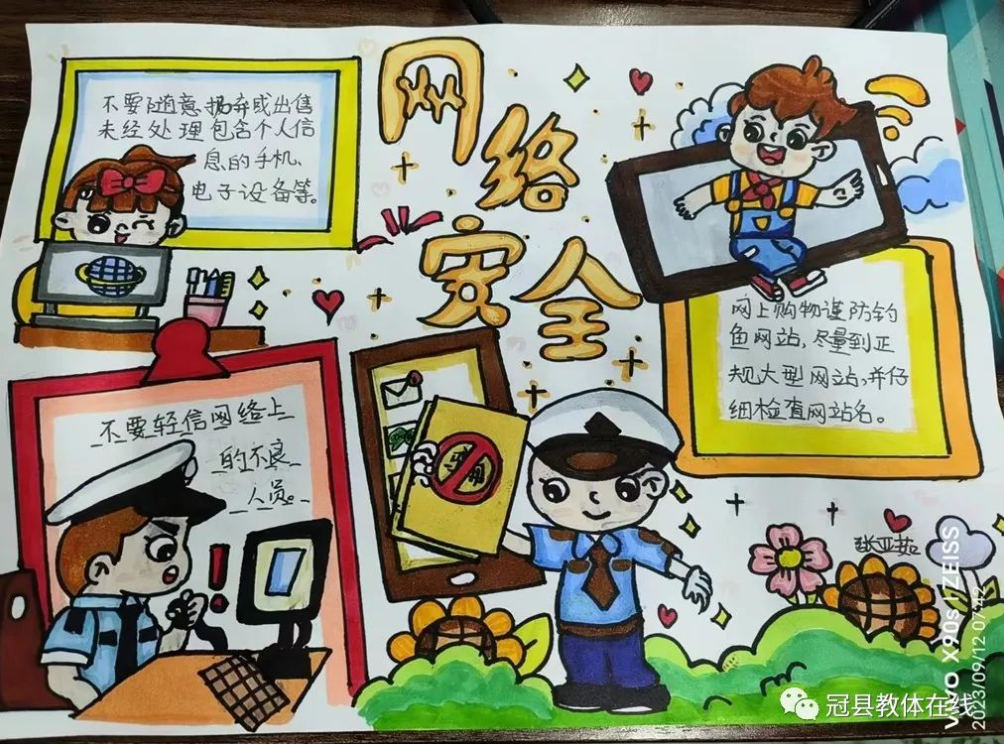 不要随意扔弃或出售
未经处理包含个人信
息的手机、
电子设备等。
网络
安全
网上购物谨防钓
鱼网站,尽量到正
规大型网站,并仔
细检查网站名。
不要轻信网络上
的不良
人员。
张亚茹
冠县教体在线
vivo X90s | ZEISS
2023/09/12 07:42